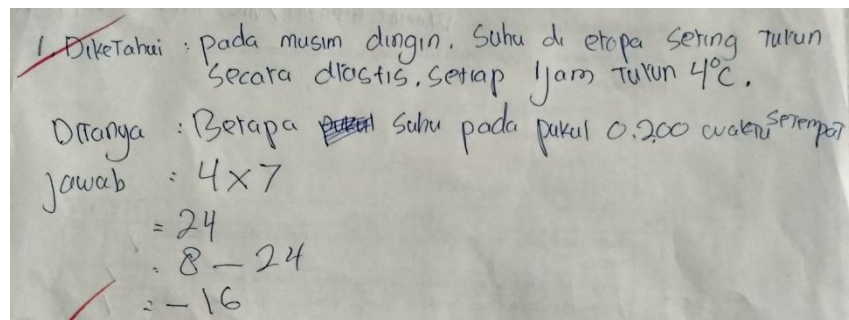 1. Diketahui : pada musim dingin. Suhu di eropa sering turun
secara drastis. setiap 1 jam turun 4°C.
Ditanya : Berapa suhu pada pukul 0.200 waktu setempat
jawab : 4 x 7
= 24
: 8 - 24
= - 16